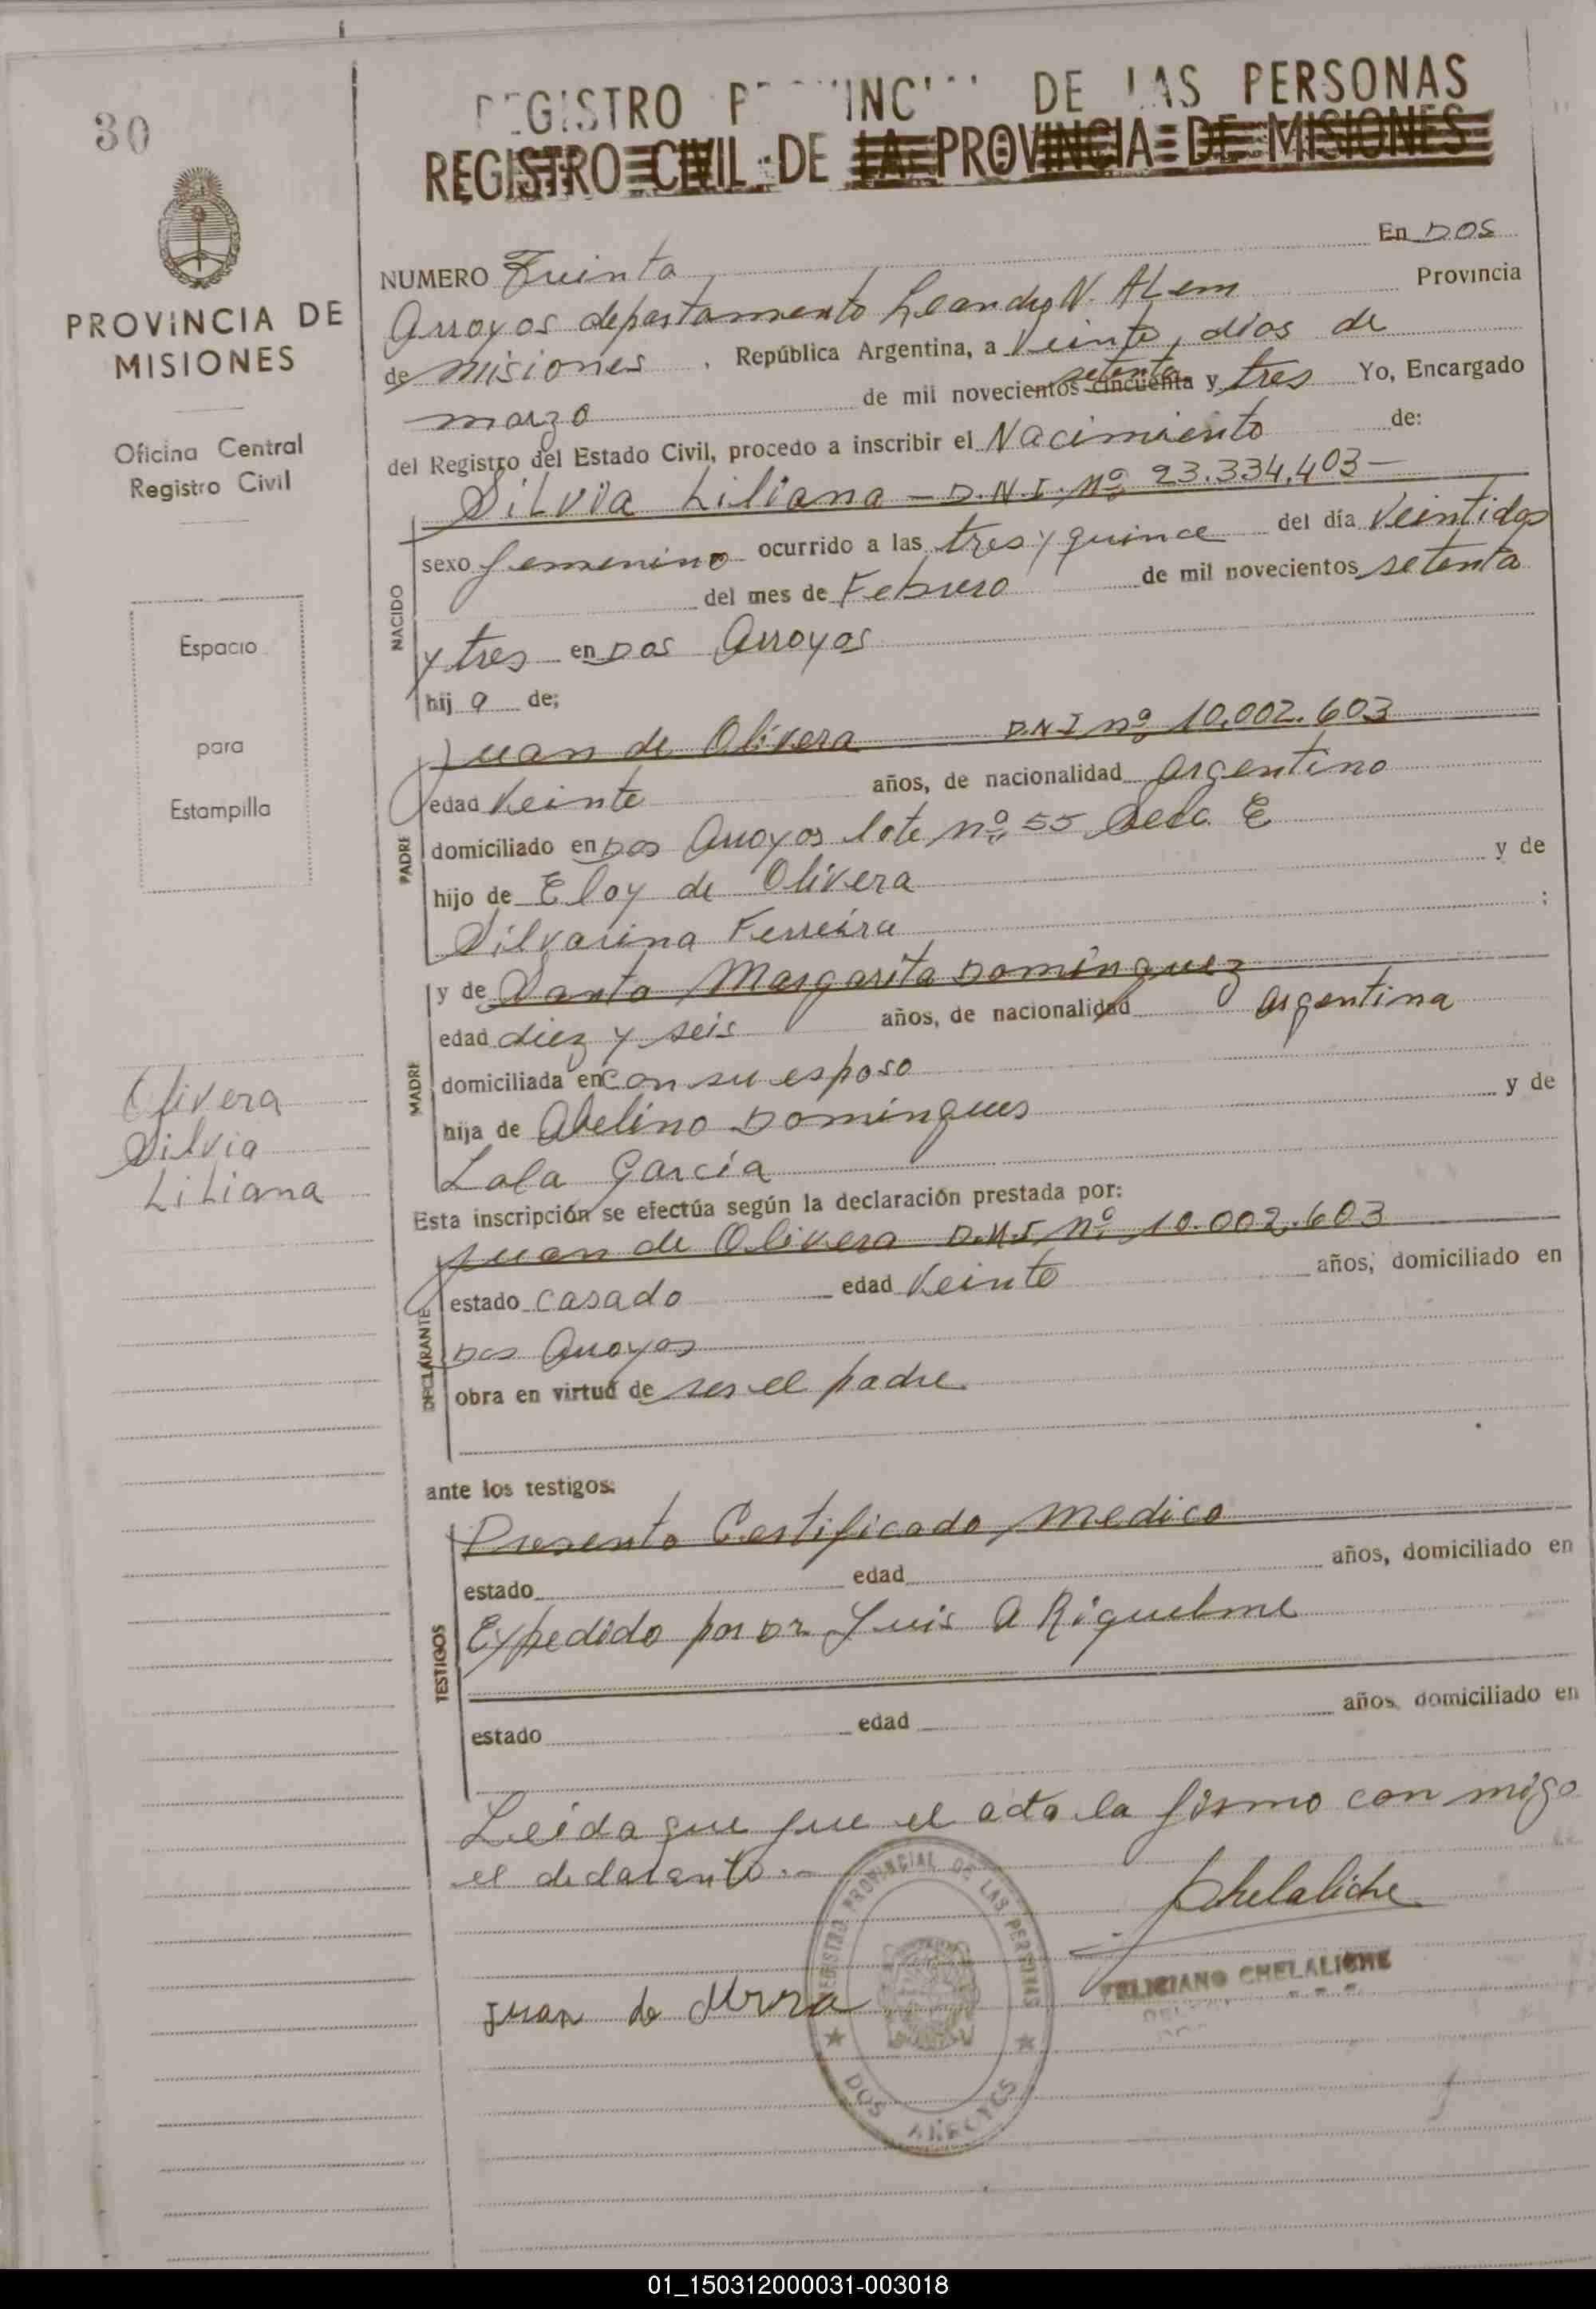 30
PROVINCIA DE
MISIONES
Oficina Central
Registro Civil
Espacio
para
Estampilla
Olivera
Silvia
Liliana
REGISTRO PROVINCIAL DE LAS PERSONAS
REGISTRO CIVIL DE LA PROVINCIA DE MISIONES
NUMERO Treinta En DOS
Arroyos departamento Leandro N. Alem Provincia
de misiones , República Argentina, a Veinte, dias de
marzo de mil novecientos cincuenta setenta y tres Yo, Encargado
del Registro del Estado Civil, procedo a inscribir el Nacimiento de:
Silvia Liliana - D.N.I. Nº 23.334.403-
NACIDO
sexo femenino ocurrido a las tres y quince del día Veintidos
del mes de Febrero de mil novecientos setenta
y tres en Dos Arroyos
hij a de;
Juan de Olivera D.N.I nº 10.002.603
PADRE
edad Veinte años, de nacionalidad argentino
domiciliado en Dos Arroyos lote nº 55 Secc. E
hijo de Eloy de Olivera y de
Silvarina Ferreira ;
MADRE
y de Santa Margarita Dominguez
edad diez y seis años, de nacionalidad argentina
domiciliada en con su esposo
hija de Abelino Domingues y de
Lala Garcia
Esta inscripción se efectúa según la declaración prestada por:
Juan de Olivera D.N.I nº 10.002.603
DECLARANTE
estado casado edad Veinte años; domiciliado en
Dos Arroyos
obra en virtud de ser el padre
ante los testigos:
TESTIGOS
Presento Certificado medico
estado edad años, domiciliado en
Expedido por Dr. Luis A Riquelme
estado edad años, domiciliado en
Leida que fue el acta la firmo con migo
el declarante.-
Chelaliche
FELICIANO CHELALICHE
Juan de
REGISTRO PROVINCIAL DE LAS PERSONAS
DOS ARROYOS
01_150312000031-003018